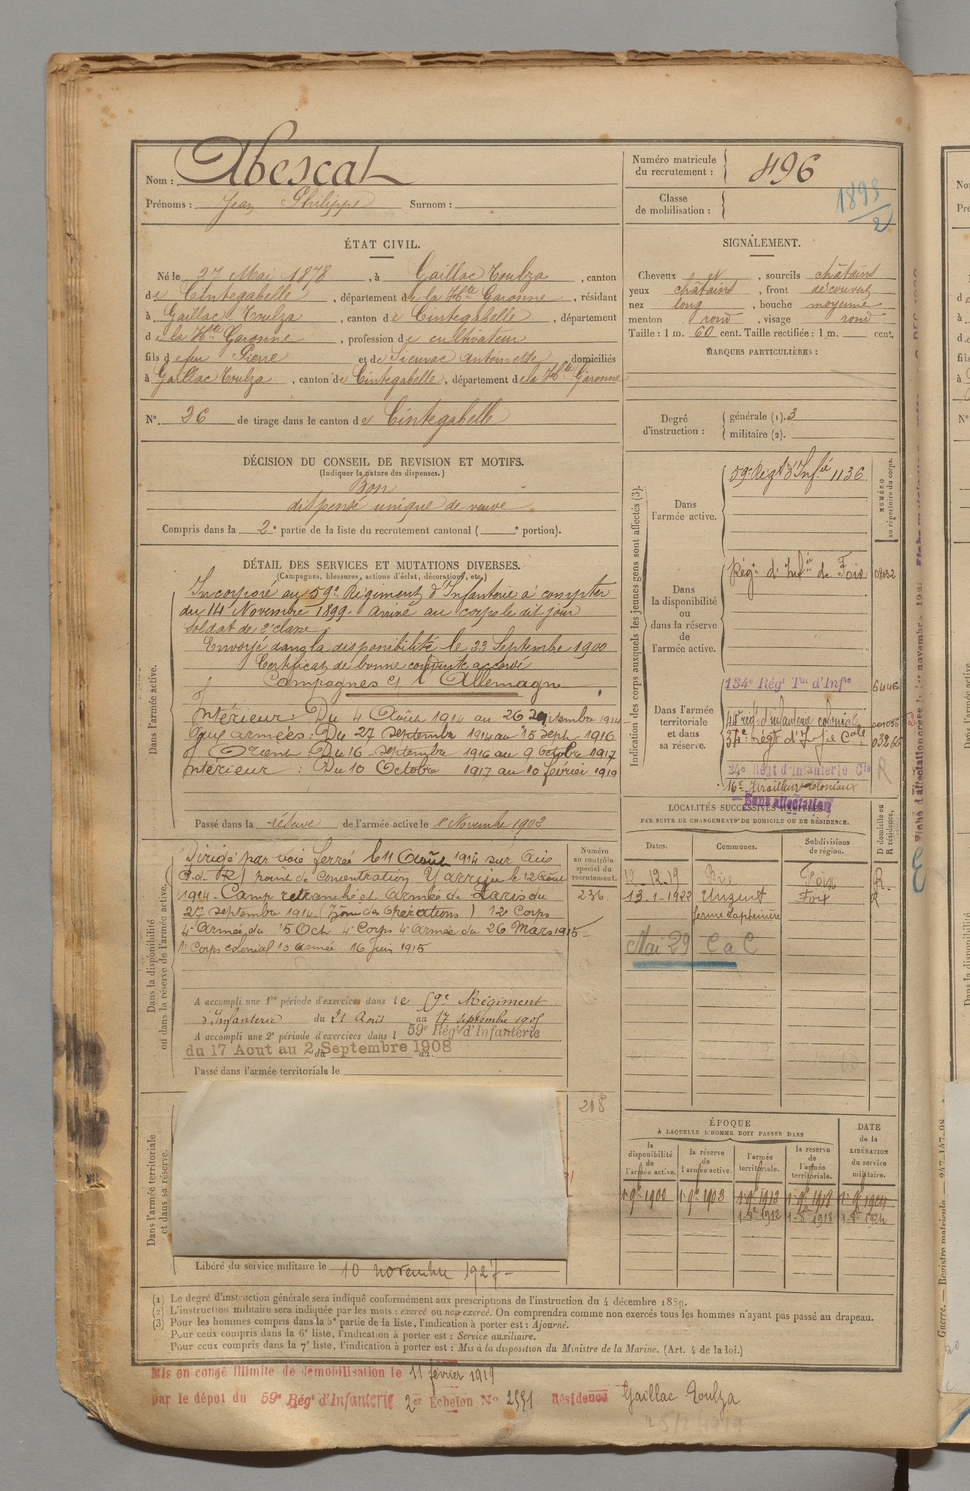 Nom : Abescat
Prénoms : Jean Philippe Surnom :
Numéro matricule du recrutement : 496
Classe de mobilisation : 1898/2
ÉTAT CIVIL.
Né le 27 Mai 1878, à Gaillac Toulza, canton
de Cintegabelle, département de la Hte Garonne, résidant
à Gaillac Toulza, canton de Cintegabelle, département
de la Hte Garonne, profession de cultivateur
fils de feu Pierre et de Antoinette, domiciliés
à Gaillac Toulza, canton de Cintegabelle, département de la Hte Garonne
N°. 26 de tirage dans le canton de Cintegabelle
SIGNALEMENT.
Cheveux, sourcils châtains
yeux châtains, front découvert
nez long, bouche moyenne
menton rond, visage rond
Taille : 1 m. 60 cent. Taille rectifiée : 1 m. cent.
MARQUES PARTICULIÈRES :
Degré d'instruction : générale (1). 3
militaire (2).
DÉCISION DU CONSEIL DE REVISION ET MOTIFS.
(Indiquer la nature des dispenses.)
Bon
dispensé unique de veuve
Compris dans la 2e partie de la liste du recrutement cantonal ( e portion).
DÉTAIL DES SERVICES ET MUTATIONS DIVERSES.
(Campagnes, blessures, actions d'éclat, décorations, etc.)
Dans l'armée active.
Incorporé au 59e Régiment d'Infanterie à compter
du 14 Novembre 1899. Arrivé au corps le dit jour
soldat de 2e classe
Envoyé dans la disponibilité le 22 Septembre 1900
Certificat de bonne conduite accordé
Campagnes c/ l'Allemagne
Intérieur : Du 4 Août 1914 au 26 Septembre 1914
Aux armées : Du 27 Septembre 1914 au 15 Sept 1916
Orient Du 16 Septembre 1916 au 9 Octobre 1917
Intérieur : Du 10 Octobre 1917 au 10 février 1919
Passé dans la réserve de l'armée active le 1er Novembre 1902
Indication des corps auxquels les jeunes gens sont affectés (3).
NUMÉRO au répertoire du corps.
Dans l'armée active. 59e Régt d'Infie 1136
Dans la disponibilité ou dans la réserve de l'armée active. Régt d'Infie de Foix
Dans l'armée territoriale et dans sa réserve.
134e Régt Tal d'Infie
régt d'infanterie coloniale
Régt d'Infie Cale
24e Régt d'Infanterie Cle
16e Tirailleurs coloniaux
Sans affectation
LOCALITÉS SUCCESSIVES HABITÉES
PAR SUITE DE CHANGEMENTS DE DOMICILE OU DE RÉSIDENCE.
Dates. Communes. Subdivisions de région. D domicile ou R résidence.
12.19 Foix R
13.1.1922 Unzent Foix R
Mai 29 C a C
Dans la disponibilité ou dans la réserve de l'armée active.
Numéro au contrôle spécial du recrutement.
236
Dirigé par voie ferrée le 11 Août 1914 sur
point de Concentration Y arrivé le 12 août
1914. Camp retranché et Armée de Paris du
27 septembre 1914 (Zone des Opérations) 12e Corps
4e Armée du 5 Oct 4e Corps 4e Armée du 26 Mars 1915
1er Corps colonial 10 armée 16 Juin 1915
A accompli une 1re période d'exercices dans le 59e Régiment
d'Infanterie du 21 Août au 17 septembre 1905
A accompli une 2e période d'exercices dans l 59e Régt d'Infanterie
du 17 Aout au 2 Septembre 1908
Passé dans l'armée territoriale le
Dans l'armée territoriale et dans sa réserve.
218
Libéré du service militaire le 10 novembre 1927
ÉPOQUE
À LAQUELLE L'HOMME DOIT PASSER DANS
la disponibilité de l'armée active. la réserve de l'armée active. l'armée territoriale. la réserve de l'armée territoriale. DATE de la LIBÉRATION du service militaire.
1er 9bre 1900 1er 9bre 1902 1er 9bre 1912 1er 9bre 1918 1er 9bre 1924
(1) Le degré d'instruction générale sera indiqué conformément aux prescriptions de l'instruction du 4 décembre 1889.
(2) L'instruction militaire sera indiquée par les mots : exercé ou non exercé. On comprendra comme non exercés tous les hommes n'ayant pas passé au drapeau.
(3) Pour les hommes compris dans la 5e partie de la liste, l'indication à porter est : Ajourné.
Pour ceux compris dans la 6e liste, l'indication à porter est : Service auxiliaire.
Pour ceux compris dans la 7e liste, l'indication à porter est : Mis à la disposition du Ministre de la Marine. (Art. 4 de la loi.)
Mis en congé illimité de démobilisation le 11 février 1919
par le dépôt du 59e Régt d'Infanterie 2er Échelon No 2551 Résidence Gaillac Toulza